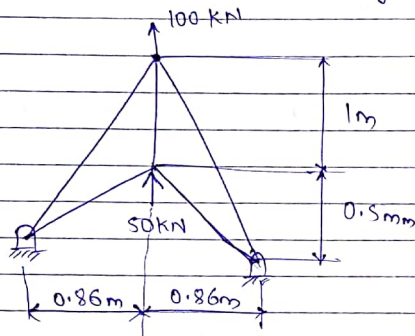 100 KN
1m
0.5mm
50KN
0.86m 0.86m